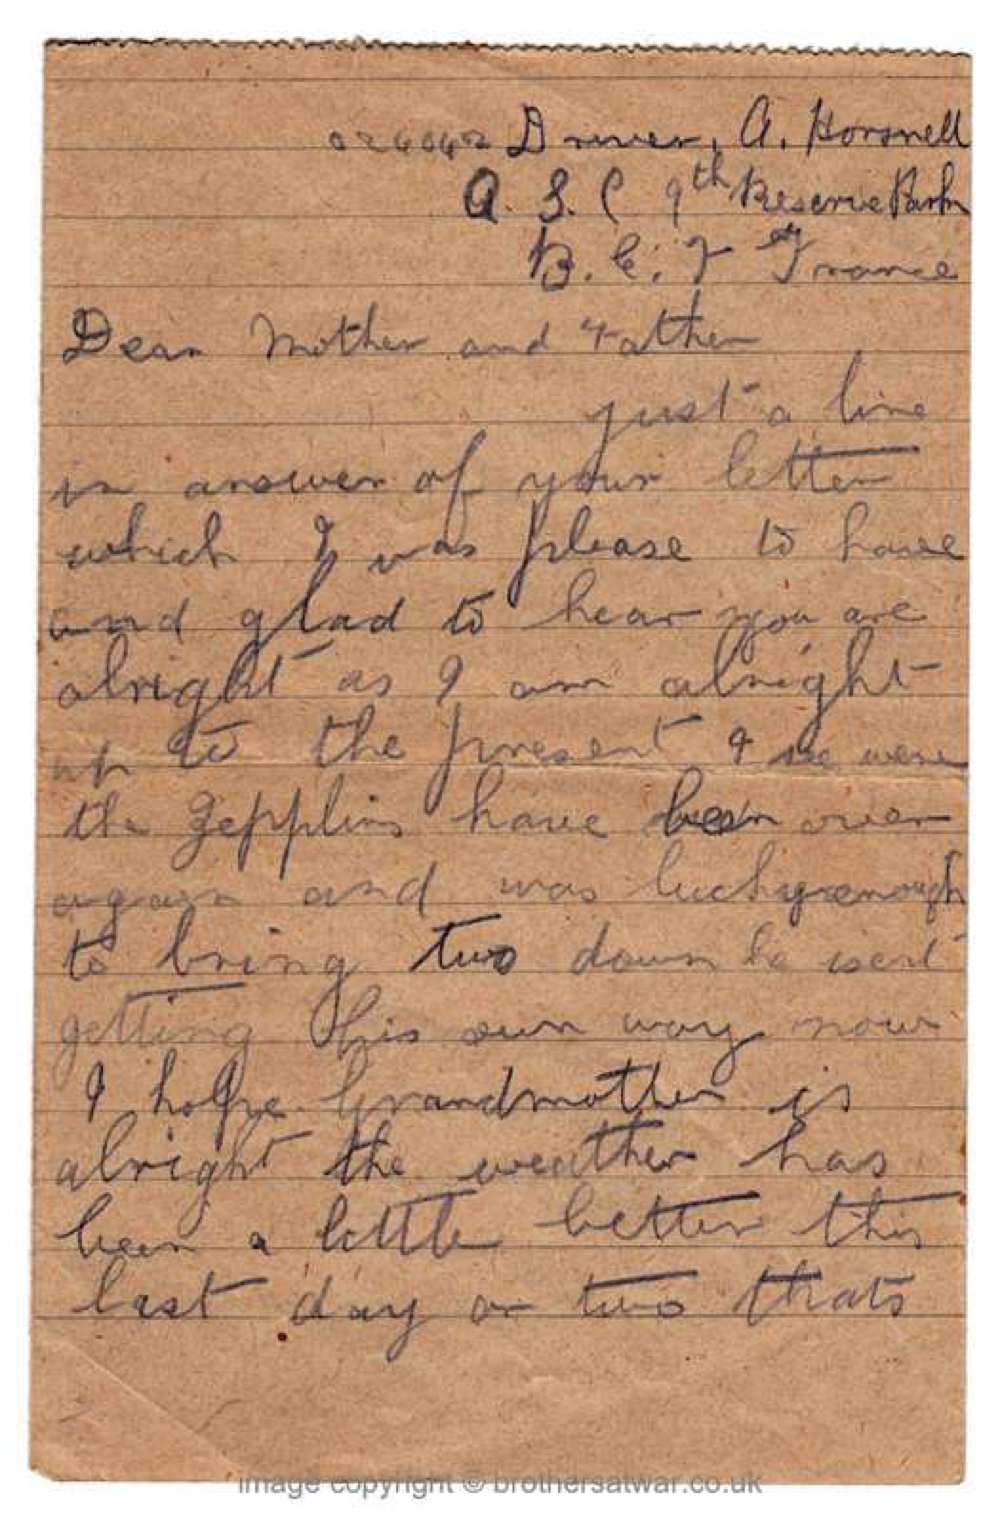 024042 Driver, A. Horsnell
A. S. C 9th Reserve Park
B. E. F France
Dear Mother and Father
just a line
in answer of your letter
which I was please to have
and glad to hear you are
alright as I am alright
up to the present I see were
the Zepplins have been over
again and was lucky enough
to bring two down he isent
getting his own way now
I hope Grandmother is
alright the weather has
been a little better this
last day or two thats
image copyright © brothersatwar.co.uk